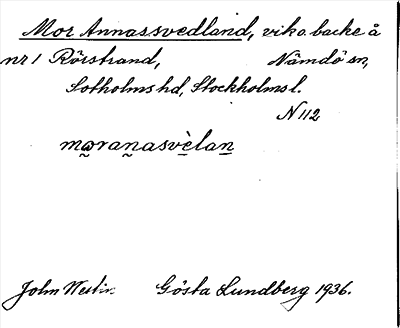 Mor Annassvedland, vik o. backe å
nr 1 Rörstrand, Nämdö sn,
Sotholms hd, Stockholms l.
N 112
mωranasvèlan
John Westin Gösta Lundberg 1936.